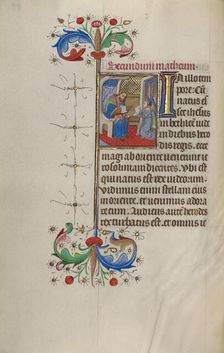 Secundum matheum
In illo tem
pore: Cū
natus es
set ihesus
in bethleem iude
in diebus hero
dis regis. ecce
magi ab oriente uenerunt ie
rosolimam dicentes. Ubi est
qui natus est rex iudeorum.
vidimus enim stellam eius
in oriente. et uenimus adora
re eum. Audiens autē herodes
rex turbatus est. et omnis ie